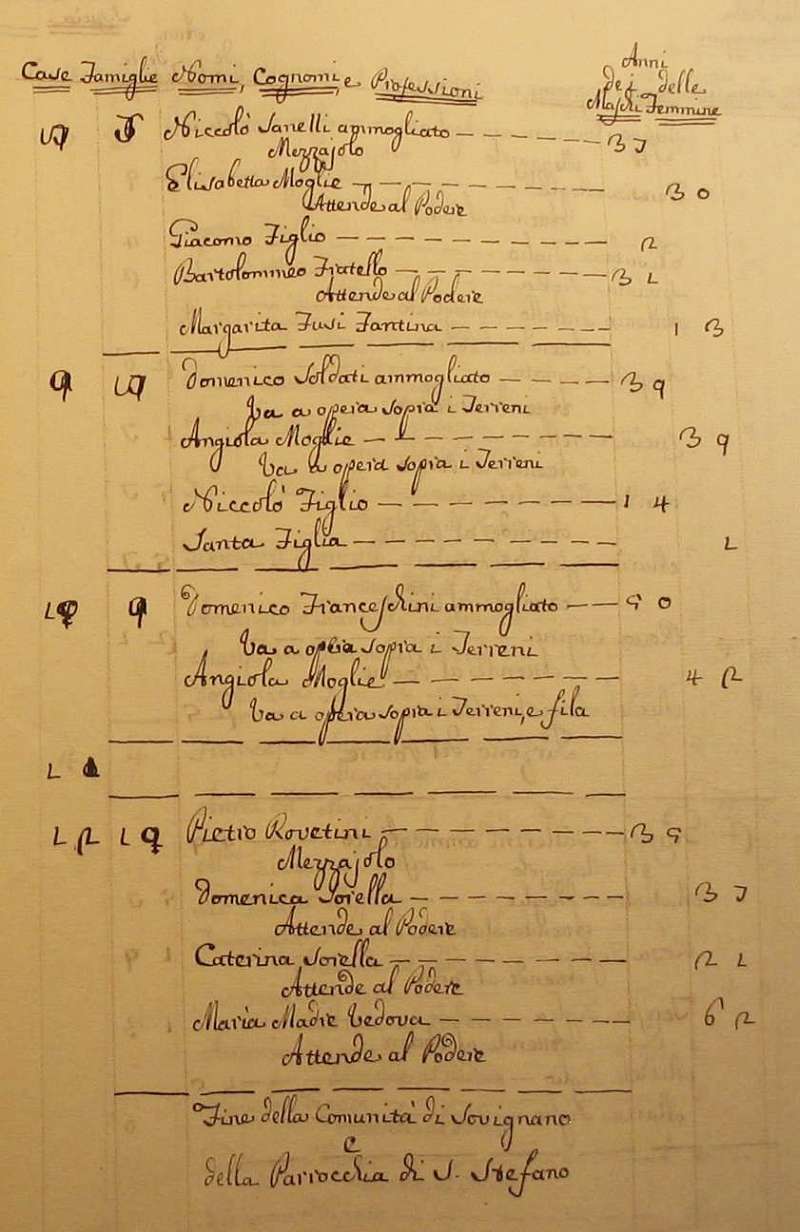 Case Famiglie Nomi, Cognomi, e Professioni Anni
dei delle
Maschi Femmine
8 7 Niccolò Sanelli ammogliato 37
Mezzajolo
Elisabetta Moglie 30
Attende al Podere
Giacomo Figlio 2
Bartolommeo Fratello 31
Attende al Podere
Margarita Fusi Fantina 13
9 8 Domenico Soldati ammogliato 39
Va a opera sopra i Terreni
Angiola Moglie 39
Va a opera sopra i Terreni
Niccolò Figlio 14
Santa Figlia 1
10 9 Domenico Franceschini ammogliato 50
Va a opera sopra i Terreni
Angiola Moglie 42
Va a opera sopra i Terreni, e fila
11
12 10 Pietro Rovetini 35
Mezzajolo
Domenica Sorella 37
Attende al Podere
Caterina Sorella 21
Attende al Podere
Maria Madre Vedova 62
Attende al Podere
Fine della Comunità di Sovignano
e
della Parrocchia di S. Stefano